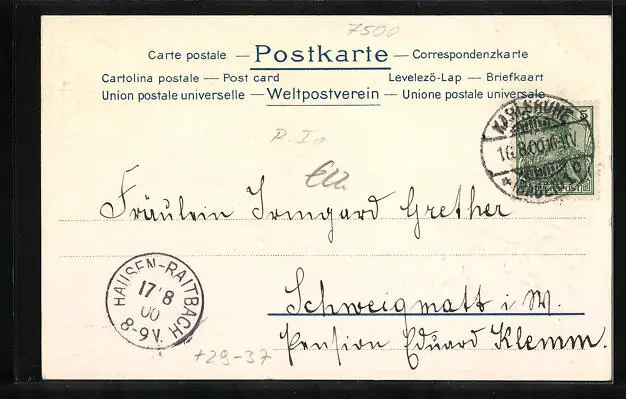 7500
Carte postale — Postkarte — Correspondenzkarte
Cartolina postale — Post card Levelezö-Lap — Briefkaart
Union postale universelle — Weltpostverein — Unione postale universale
KARLSRUHE
16.8.00
(BADEN)
5
Fräulein Irmgard Grether
HAUSEN-RAITBACH
17 8
00
8-9V.
Schweigmatt i W.
Pension Eduard Klemm.
+29-37